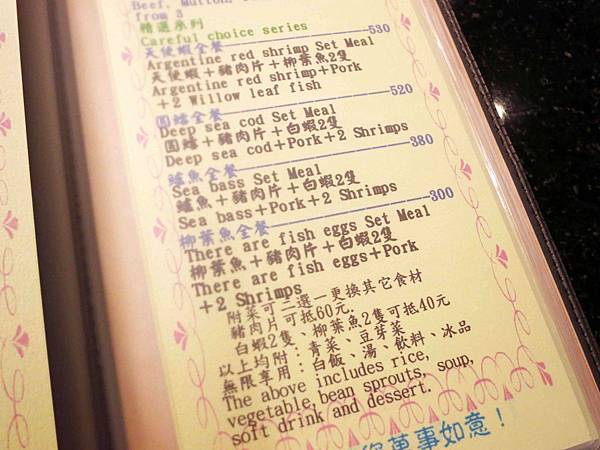 Beef, Mutton,
from 3
精選系列
Careful choice series
天使蝦全餐 530
Argentine red shrimp Set Meal
天使蝦＋豬肉片＋柳葉魚2隻
Argentine red shrimp＋Pork
＋2 Willow leaf fish
圓鱈全餐 520
Deep sea cod Set Meal
圓鱈＋豬肉片＋白蝦2隻
Deep sea cod＋Pork＋2 Shrimps
鱸魚全餐 380
Sea bass Set Meal
鱸魚＋豬肉片＋白蝦2隻
Sea bass＋Pork＋2 Shrimps
柳葉魚全餐 300
There are fish eggs Set Meal
柳葉魚＋豬肉片＋白蝦2隻
There are fish eggs＋Pork
＋2 Shrimps
附菜可二選一更換其它食材
豬肉片可抵60元,
白蝦2隻、柳葉魚2隻可抵40元
以上均附：青菜、豆芽菜
無限享用：白飯、湯、飲料、冰品
The above includes rice,
vegetable,bean sprouts, soup,
soft drink and dessert.
您萬事如意！